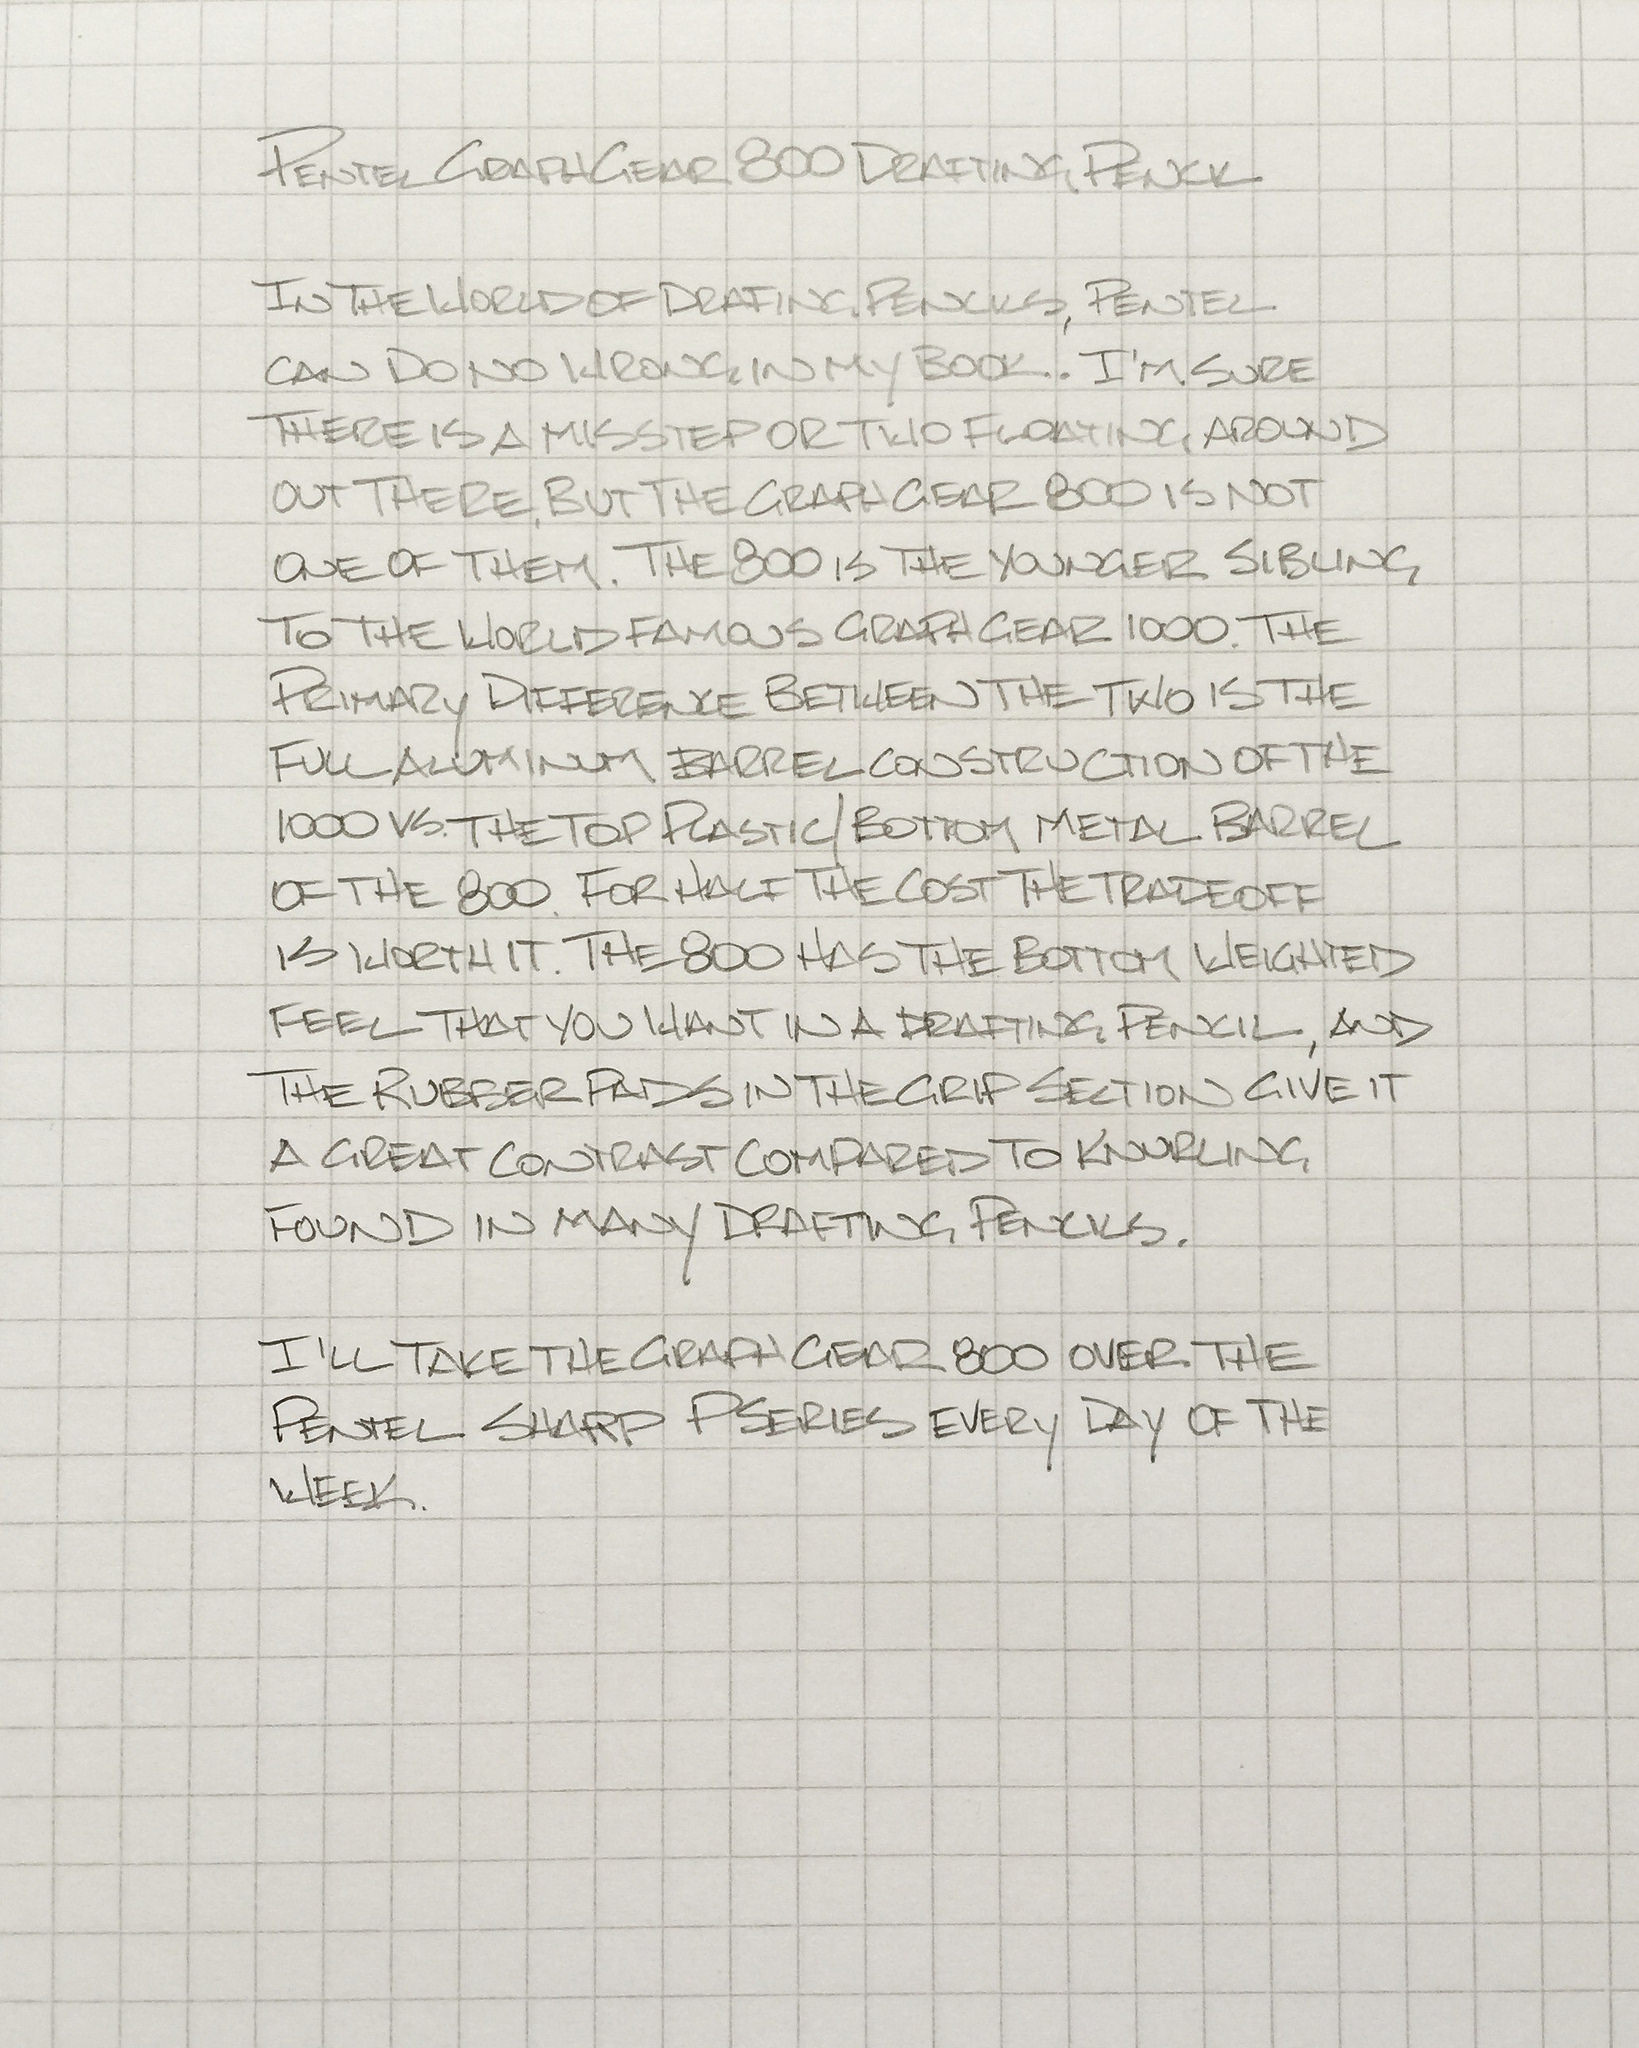 PENTEL GRAPHGEAR 800 DRAFTING PENCIL
IN THE WORLD OF DRAFING PENCILS, PENTEL
CAN DO NO WRONG IN MY BOOK.. I'M SURE
THERE IS A MISSTEP OR TWO FLOATING AROUND
OUT THERE, BUT THE GRAPHGEAR 800 IS NOT
ONE OF THEM. THE 800 IS THE YOUNGER SIBLING
TO THE WORLD FAMOUS GRAPHGEAR 1000. THE
PRIMARY DIFFERENCE BETWEEN THE TWO IS THE
FULL ALUMINUM BARREL CONSTRUCTION OF THE
1000 VS. THE TOP PLASTIC/BOTTOM METAL BARREL
OF THE 800. FOR HALF THE COST THE TRADEOFF
IS WORTH IT. THE 800 HAS THE BOTTOM WEIGHTED
FEEL THAT YOU WANT IN A DRAFTING PENCIL, AND
THE RUBBER PADS IN THE GRIP SECTION GIVE IT
A GREAT CONTRAST COMPARED TO KNURLING
FOUND IN MANY DRAFTING PENCILS.
I'LL TAKE THE GRAPHGEAR 800 OVER THE
PENTEL SHARP P SERIES EVERY DAY OF THE
WEEK.